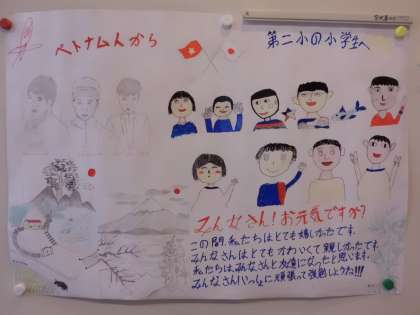 ベトナム人から
第二小の小学生へ
みんなさん!お元気ですか?
この間、私たちはとても嬉しかったです。
みんなさんはとてもかわいくて親しかったです。
私たちはみなさんと友達になったと思います。
みんなさんいっしょに頑張って強勉しようね!!!